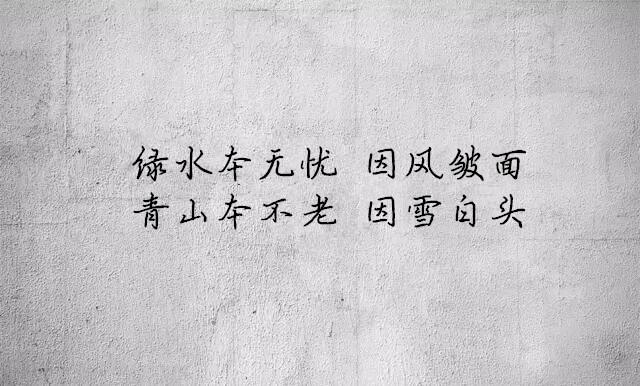 绿水本无忧 因风皱面
青山本不老 因雪白头